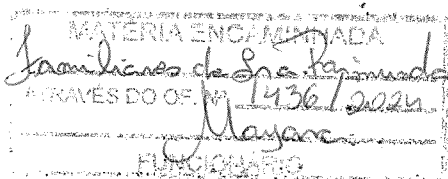 MATÉRIA ENCAMINHADA
Familiares de Sra. Raimunda
ATRAVÉS DO OF. Nº 1436/2024
Mayara
FUNCIONÁRIO